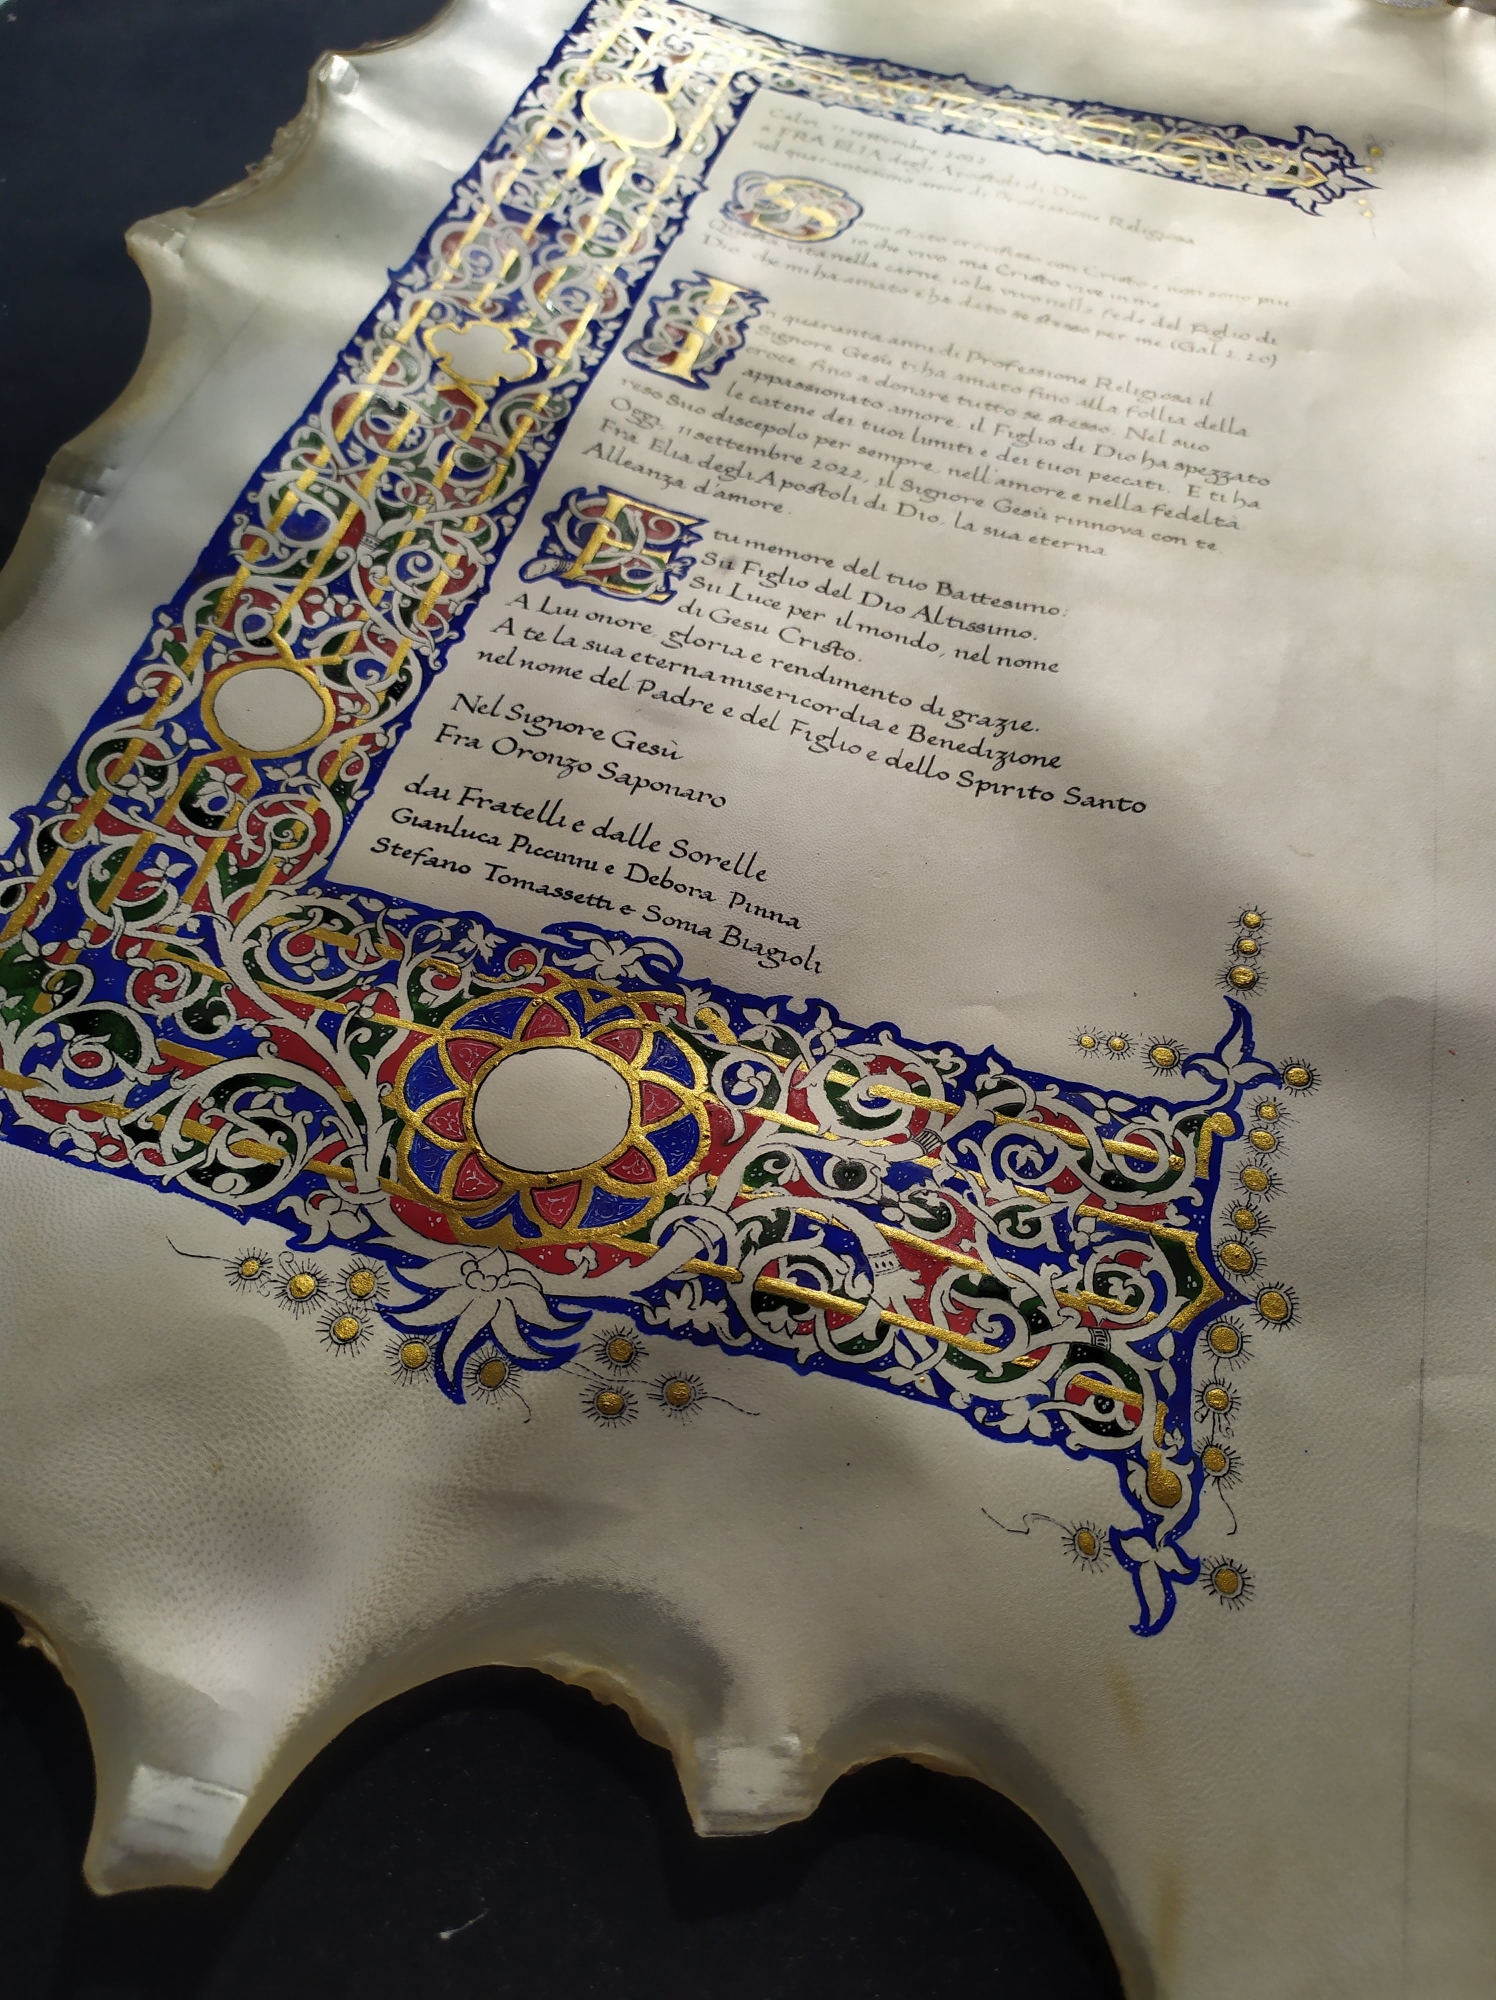 Calvi, 11 settembre 2022
a FRA ELIA degli Apostoli di Dio
nel quarantesimo anno di Professione Religiosa
Sono stato crocifisso con Cristo e non sono più
io che vivo, ma Cristo vive in me.
Questa vita nella carne, io la vivo nella fede del Figlio di
Dio, che mi ha amato e ha dato se stesso per me (Gal 2, 20)
In quaranta anni di Professione Religiosa il
Signore Gesù ti ha amato fino alla follia della
croce, fino a donare tutto se stesso. Nel suo
appassionato amore, il Figlio di Dio ha spezzato
le catene dei tuoi limiti e dei tuoi peccati. E ti ha
reso Suo discepolo per sempre, nell'amore e nella fedeltà.
Oggi, 11 settembre 2022, il Signore Gesù rinnova con te,
Fra Elia degli Apostoli di Dio, la sua eterna
Alleanza d'amore.
E tu memore del tuo Battesimo:
Sii Figlio del Dio Altissimo.
Sii Luce per il mondo, nel nome
di Gesù Cristo.
A Lui onore, gloria e rendimento di grazie.
A te la sua eterna misericordia e Benedizione
nel nome del Padre e del Figlio e dello Spirito Santo
Nel Signore Gesù
Fra Oronzo Saponaro
dai Fratelli e dalle Sorelle
Gianluca Piccinni e Debora Pinna
Stefano Tomassetti e Sonia Biagioli